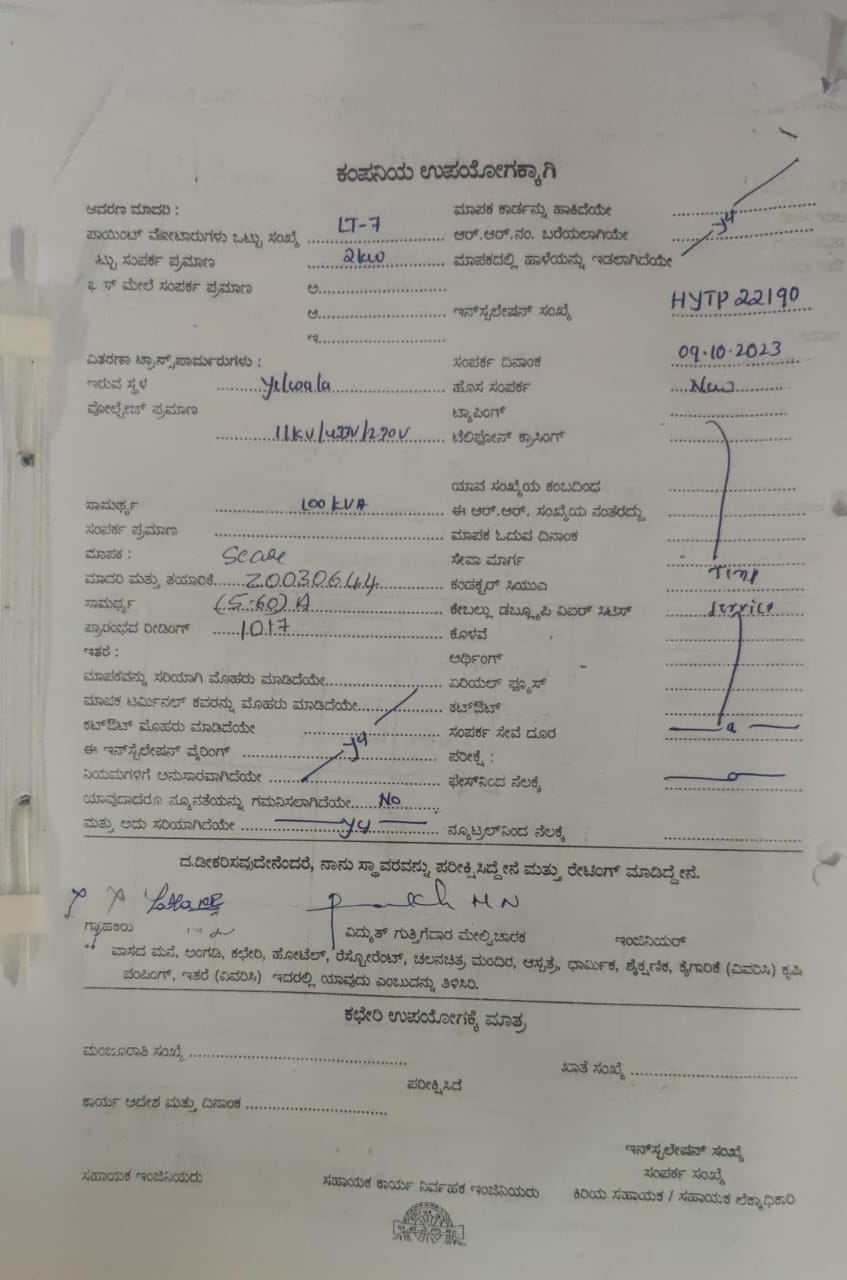 ಕಂಪನಿಯ ಉಪಯೋಗಕ್ಕಾಗಿ
ಆವರಣ ಮಾದರಿ : ಮಾಪಕ ಕಾರ್ಡನ್ನು ಹಾಕಿದೆಯೇ
ಪಾಯಿಂಟ್ ಮೋಟಾರುಗಳು ಒಟ್ಟು ಸಂಖ್ಯೆ LT-7 ಆರ್.ಆರ್.ನಂ. ಬರೆಯಲಾಗಿಯೇ
ಟ್ಟು ಸಂಪರ್ಕ ಪ್ರಮಾಣ 2kw ಮಾಪಕದಲ್ಲಿ ಹಾಳೆಯನ್ನು ಇಡಲಾಗಿದೆಯೇ
ಮೇಲೆ ಸಂಪರ್ಕ ಪ್ರಮಾಣ ಅ.
ಆ. ಇನ್‌ಸ್ಟಲೇಷನ್ ಸಂಖ್ಯೆ HYTP 22190
ಇ.
ವಿತರಣಾ ಟ್ರಾನ್ಸ್‌ಪಾರ್ಮರುಗಳು : ಸಂಪರ್ಕ ದಿನಾಂಕ 09.10.2023
ಇರುವ ಸ್ಥಳ Yelwala ಹೊಸ ಸಂಪರ್ಕ New
ವೋಲ್ಟೇಜ್ ಪ್ರಮಾಣ ಟ್ಯಾಪಿಂಗ್
11KV/433V/230V ಟೆಲಿಫೋನ್ ಕ್ರಾಸಿಂಗ್
ಯಾವ ಸಂಖ್ಯೆಯ ಕಂಬದಿಂದ
ಸಾಮರ್ಥ್ಯ 100 KVA ಈ ಆರ್.ಆರ್. ಸಂಖ್ಯೆಯ ನಂತರದ್ದು
ಸಂಪರ್ಕ ಪ್ರಮಾಣ ಮಾಪಕ ಓದುವ ದಿನಾಂಕ
ಮಾಪಕ : ಸೇವಾ ಮಾರ್ಗ
ಮಾದರಿ ಮತ್ತು ತಯಾರಿಕೆ 20030644 ಕಂಡಕ್ಟರ್ ಸಿಯುಎ Temp
ಸಾಮರ್ಥ್ಯ (5-60) A ಕೇಬಲ್ಲು ಡಬ್ಲ್ಯೂಪಿ ವಿಐಆರ್ ಸಿಟಿಸ್ service
ಪ್ರಾರಂಭದ ರೀಡಿಂಗ್ 1017 ಕೊಳವೆ
ಇತರೆ : ಅರ್ಥಿಂಗ್
ಮಾಪಕವನ್ನು ಸರಿಯಾಗಿ ಮೊಹರು ಮಾಡಿದೆಯೇ ಏರಿಯಲ್ ಫ್ಯೂಸ್
ಮಾಪಕ ಟರ್ಮಿನಲ್ ಕವರನ್ನು ಮೊಹರು ಮಾಡಿದೆಯೇ ಕಟ್‌ಔಟ್
ಕಟ್‌ಔಟ್ ಮೊಹರು ಮಾಡಿದೆಯೇ ಸಂಪರ್ಕ ಸೇವೆ ದೂರ
ಈ ಇನ್‌ಸ್ಟಲೇಷನ್ ವೈರಿಂಗ್ ಪರೀಕ್ಷೆ :
ನಿಯಮಗಳಿಗೆ ಅನುಸಾರವಾಗಿದೆಯೇ ಫೇಸ್‌ನಿಂದ ನೆಲಕ್ಕೆ
ಯಾವುದಾದರೂ ನ್ಯೂನತೆಯನ್ನು ಗಮನಿಸಲಾಗಿದೆಯೇ No
ಮತ್ತು ಅದು ಸರಿಯಾಗಿದೆಯೇ ನ್ಯೂಟ್ರಲ್‌ನಿಂದ ನೆಲಕ್ಕೆ
ದ.ಡೀಕರಿಸವುದೇನೆಂದರೆ, ನಾನು ಸ್ಥಾವರವನ್ನು ಪರೀಕ್ಷಿಸಿದ್ದೇನೆ ಮತ್ತು ರೇಟಿಂಗ್ ಮಾಡಿದ್ದೇನೆ.
ಗ್ರಾಹಕರು ವಿದ್ಯುತ್ ಗುತ್ತಿಗೆದಾರ ಮೇಲ್ವಿಚಾರಕ ಇಂಜಿನಿಯರ್
** ವಾಸದ ಮನೆ, ಅಂಗಡಿ, ಕಛೇರಿ, ಹೋಟೆಲ್, ರೆಸ್ಟೋರೆಂಟ್, ಚಲನಚಿತ್ರ ಮಂದಿರ, ಆಸ್ಪತ್ರೆ, ಧಾರ್ಮಿಕ, ಶೈಕ್ಷಣಿಕ, ಕೈಗಾರಿಕೆ (ವಿವರಿಸಿ) ಕೃಷಿ
ಪಂಪಿಂಗ್, ಇತರೆ (ವಿವರಿಸಿ) ಇದರಲ್ಲಿ ಯಾವುದು ಎಂಬುದನ್ನು ತಿಳಿಸಿರಿ.
ಕಛೇರಿ ಉಪಯೋಗಕ್ಕೆ ಮಾತ್ರ
ಮಂಜೂರಾತಿ ಸಂಖ್ಯೆ ಖಾತೆ ಸಂಖ್ಯೆ
ಪರೀಕ್ಷಿಸಿದೆ
ಕಾರ್ಯ ಆದೇಶ ಮತ್ತು ದಿನಾಂಕ
ಇನ್‌ಸ್ಟಲೇಷನ್ ಸಂಖ್ಯೆ
ಸಂಪರ್ಕ ಸಂಖ್ಯೆ
ಸಹಾಯಕ ಇಂಜಿನಿಯರು ಸಹಾಯಕ ಕಾರ್ಯ ನಿರ್ವಹಕ ಇಂಜಿನಿಯರು ಕಿರಿಯ ಸಹಾಯಕ / ಸಹಾಯಕ ಲೆಕ್ಕಾಧಿಕಾರಿ